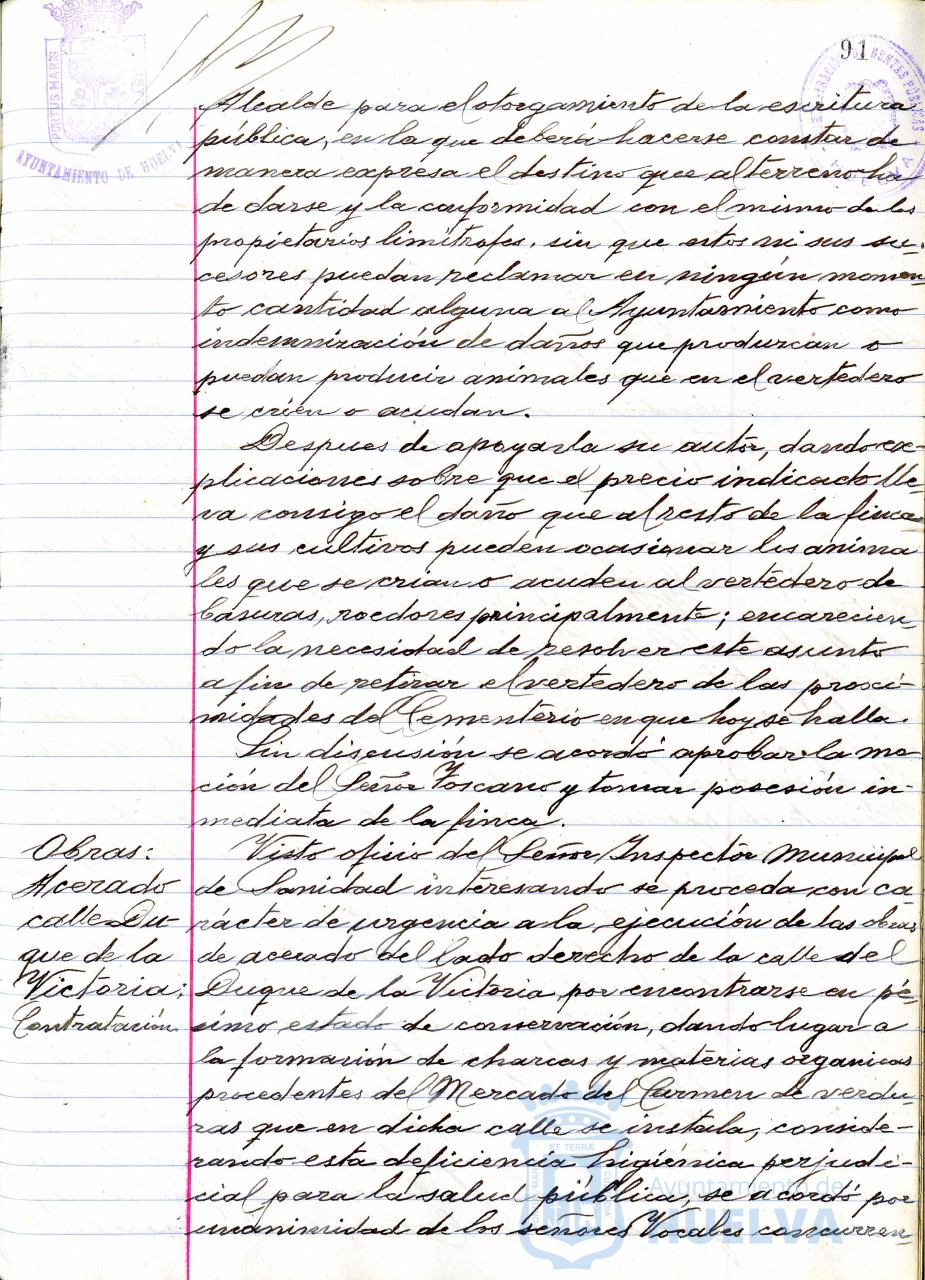 91
PORTUS MARIS
AYUNTAMIENTO DE HUELVA
Alcalde para el otorgamiento de la escritura
pública, en la que deberá hacerse constar de
manera expresa el destino que al terreno ha
de darse y la conformidad con el mismo de los
propietarios limítrofes, sin que estos ni sus su-
cesores puedan reclamar en ningún momen-
to cantidad alguna al Ayuntamiento como
indemnización de daños que produzcan o
puedan producir animales que en el vertedero
se crien o acudan.
Despues de apoyarla su autor, dando ex-
plicaciones sobre que el precio indicado lle-
va consigo el daño que al resto de la finca
y sus cultivos pueden ocasionar los anima
les que se crian o acuden al vertedero de
basuras, roedores principalmente; encarecien-
do la necesidad de resolver este asunto
a fin de retirar el vertedero de las proxi-
midades del Cementerio en que hoy se halla.
Sin discusión se acordó aprobar la mo
ción del Señor Toscano y tomar posesión in-
mediata de la finca.
Obras:
Acerado
calle Du-
que de la
Victoria;
Contratación.
Visto oficio del Señor Inspector Municipal
de Sanidad interesando se proceda con ca
rácter de urgencia a la ejecución de las obras
de acerado del lado derecho de la calle del
Duque de la Victoria por encontrarse en pé-
simo estado de conservación, dando lugar a
la formación de charcas y materias organicas
procedentes del Mercado del Carmen de verdu-
ras que en dicha calle se instala, conside-
rando esta deficiencia higiénica perjudi-
cial para la salud pública, se acordó por
unanimidad de los señores Vocales concurren-
Ayuntamiento de
HUELVA